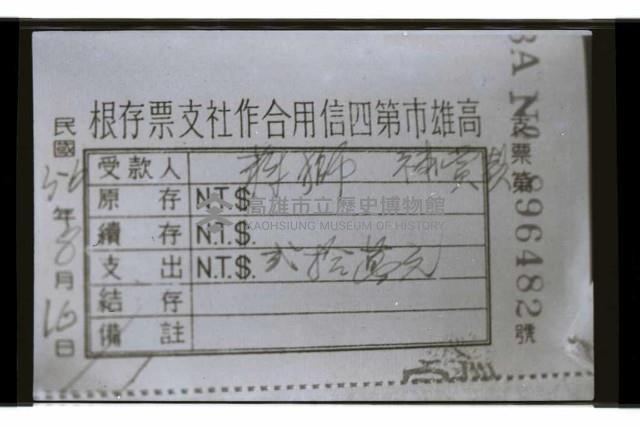 高雄市第四信用合作社支票存根
BA No 896482
支票第 896482 號
民國 56 年 8 月 16 日
受款人 蔣獅
原存 N.T.$.
續存 N.T.$.
支出 N.T.$. 弍拾萬元
結存
備註
高雄市立歷史博物館
KAOHSIUNG MUSEUM OF HISTORY